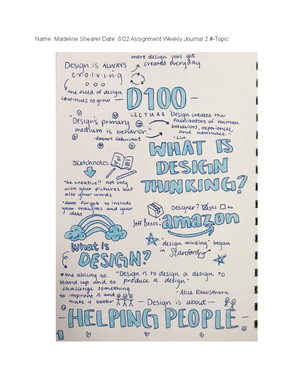 Name: Madeline Shearer Date: 6/22 Assignment Weekly Journal 2 #-Topic
more design jobs get
created everyday
Design is ALWAYS
evolving
the field of design
continues to grow
D100
LECTURE
Design creates the
facilitation of human
behaviors, experiences,
and
"Design's primary
medium is behavior."
- Robert Fabricant
WHAT IS
DESIGN
THINKING?
sketchnotes
"be creative!" not only
with your pictures but
also your words
forget to include
your thoughts and your
ideas
Designer? yes no
Jeff Bezos:
amazon
"design thinking" began
in Stanford
What is
DESIGN?
the ability to
stand up and to
challenge something
to improve it and
make it better
"Design is to design a design to
produce a design"
- Alice Rawsthorn
Design is about
HELPING PEOPLE
1